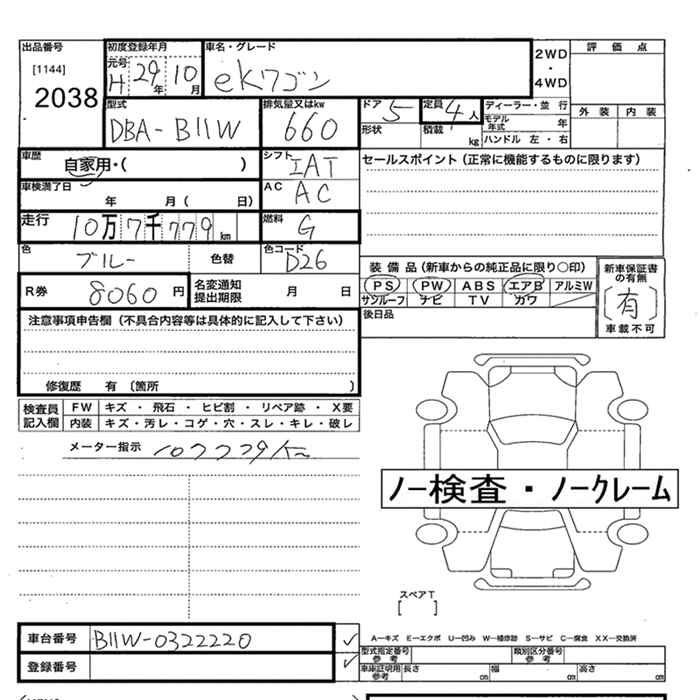 出品番号
[1144]
2038
初度登録年月
元号
H 29年 10月
車名・グレード
eKワゴン
2WD
・
4WD
評価点
外装 内装
型式
DBA-B11W
排気量又はkw
660
ドア
5
形状
定員
4人
積載
kg
ディーラー・並行
モデル年式 年
ハンドル 左・右
車歴
自家用・( )
シフト
IAT
車検満了日
年 月( 日)
AC
AC
走行
10万7千779km
燃料
G
セールスポイント(正常に機能するものに限ります)
色
ブルー
色替
色コード
D26
R券
8060円
名変通知
提出期限
月 日
装備品(新車からの純正品に限り○印)
PS PW ABS エアB アルミW
サンルーフ ナビ TV カワ
後日品
新車保証書
の有無
[有]
車載不可
注意事項申告欄(不具合内容等は具体的に記入して下さい)
修復歴 有〔箇所 〕
検査員
記入欄
FW キズ・飛石・ヒビ割・リペア跡・X要
内装 キズ・汚レ・コゲ・穴・スレ・キレ・破レ
メーター指示
107779km
ノー検査・ノークレーム
スペアT
[ ]
車台番号
B11W-0322220
登録番号
A-キズ E-エクボ U-凹み W-補修跡 S-サビ C-腐食 XX-交換済
型式指定番号
参考
類別区分番号
参考
車庫証明用
参考
長さ cm 幅 cm 高さ cm